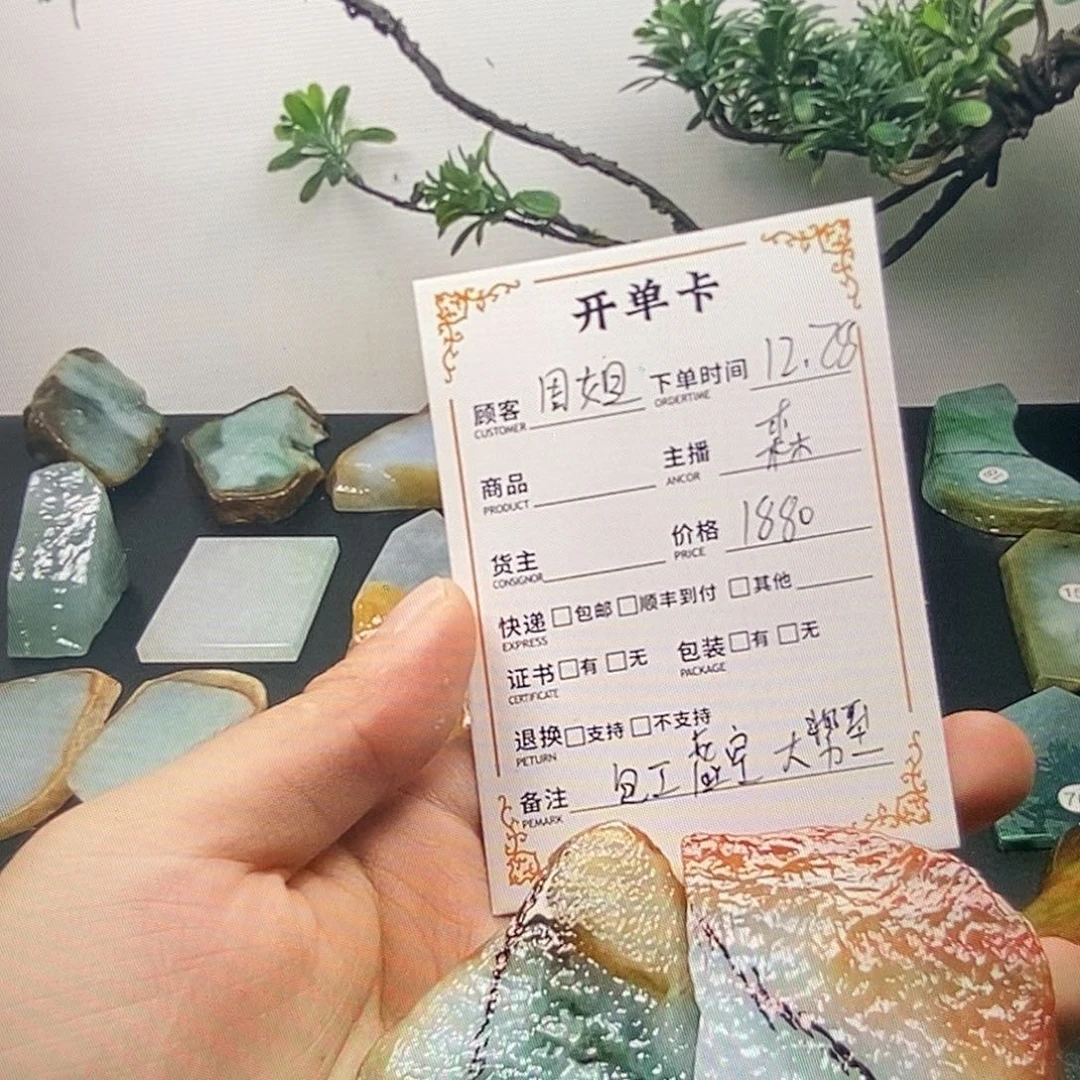 开单卡
顾客 周姐 下单时间 12.28
CUSTOMER ORDERTIME
商品 主播 森
PRODUCT ANCOR
货主 价格 1880
CONSIGNOR PRICE
快递 □包邮 □顺丰到付 □其他
EXPRESS
证书 □有 □无 包装 □有 □无
CERTIFICATE PACKAGE
退换 □支持 □不支持
PETURN
备注 包工 大
PEMARK